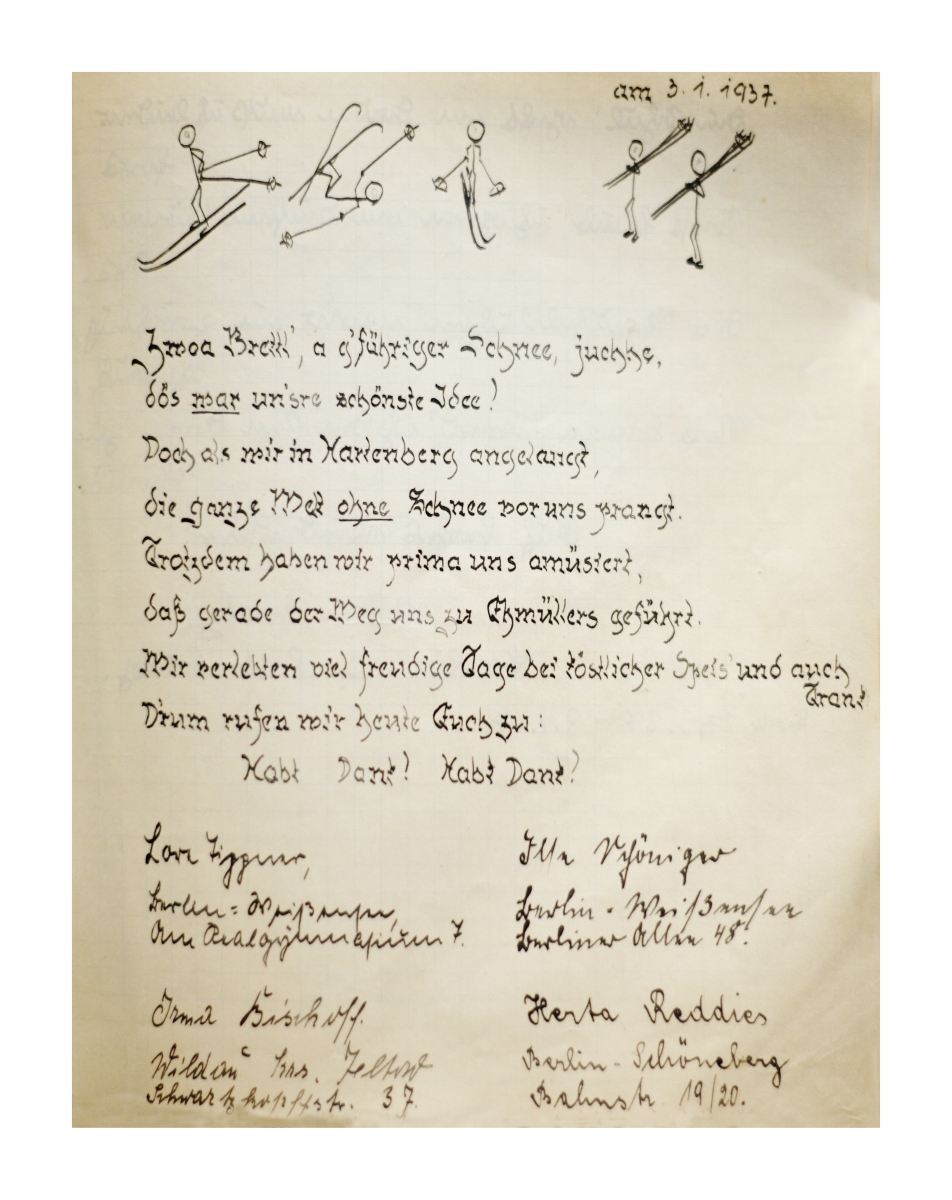 am 3.1.1937.
Zwoa Brettl', a g'führiger Schnee, juchhe,
dös war uns're schönste Idee!
Doch als wir in Hartenberg angelangt,
die ganze Welt ohne Schnee vor uns prangt.
Trotzdem haben wir prima uns amüsiert,
daß gerade der Weg uns zu Ehmüllers geführt.
Wir verlebten viel freudige Tage bei köstlicher Speis' und auch
Trank
D'rum rufen wir heute Euch zu:
Habt Dank! Habt Dank!
Lore Tippner,
Berlin-Weißensee,
Am Realgymnasium 7.
Ilse Schöniger
Berlin-Weißensee
Berliner Allee 48.
Irma Bischoff.
Wildau Krs. Teltow
Schwartzkopffstr. 37
Herta Reddies
Berlin-Schöneberg
Bahnstr. 19/20.